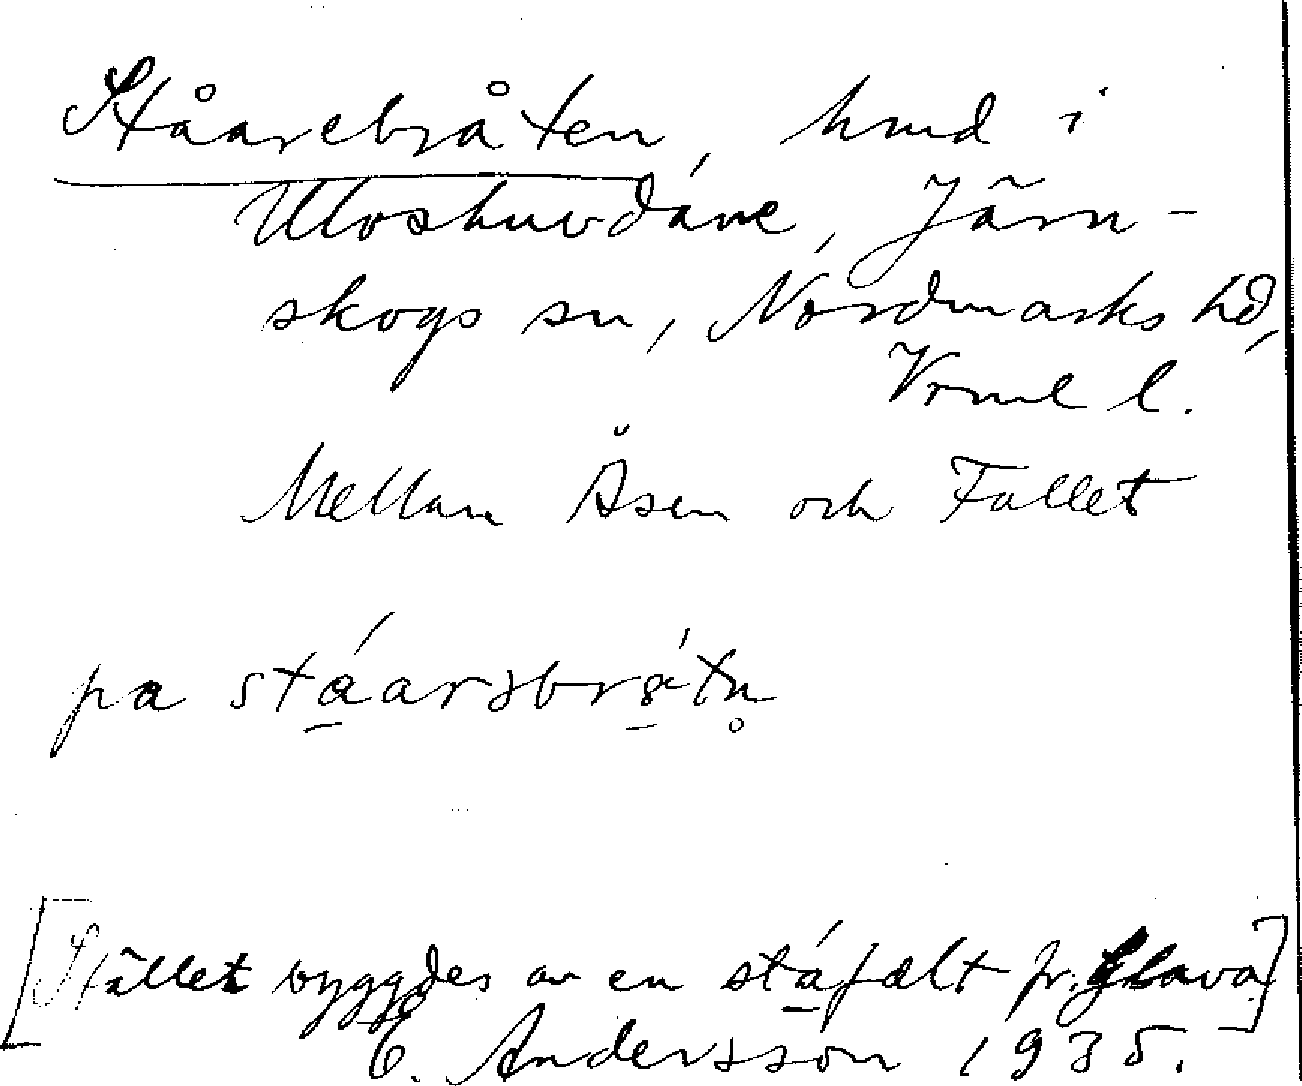 Ståarebråten, hmd i
Uloshuvdáne, Järn-
skogs sn, Nordmarks hd,
Vrml l.
Mellan Åsen och Fallet
pa stáarsbrátn̥
[Stället byggdes av en stáfælt fr. Glava]
E. Andersson 1935.